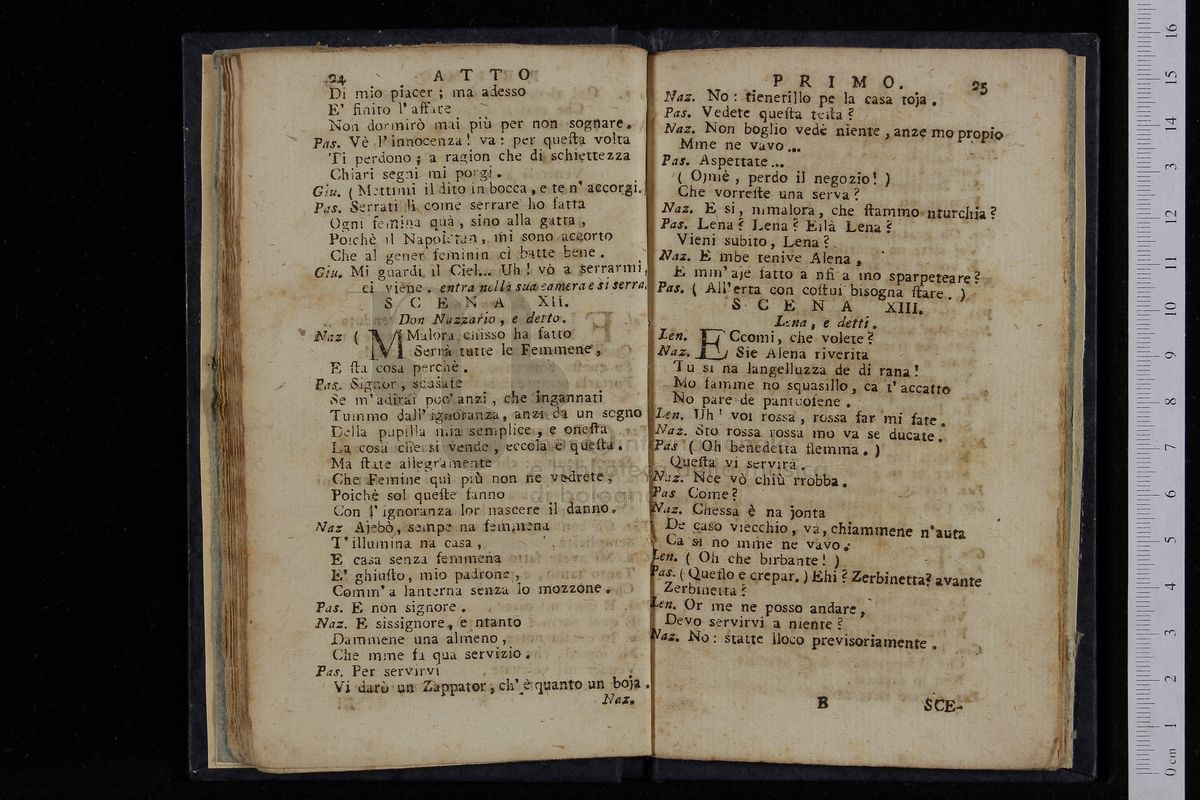 24 A T T O
Di mio piacer ; ma adesso
E' finito l' affare
Non dormirò mai più per non sognare.
Pas. Vè l' innocenza ! va : per questa volta
Ti perdono ; a ragion che di schiettezza
Chiari segni mi porgi .
Giu. ( Mettimi il dito in bocca , e te n' accorgi.
Pas. Serrati lì come serrare ho fatta
Ogni femina quà , sino alla gatta ,
Poichè il Napoletan , mi sono accorto
Che al gener feminin ci batte bene .
Giu. Mi guardi il Ciel... Uh ! vò a serrarmi,
ei viene . entra nella sua camera e si serra.
S C E N A XII.
Don Nazzario , e detto .
Naz ( MMalora chisso ha fatto
Serrà tutte le Femmene ,
E sta cosa perchè .
Pas. Signor , scusate
Se m' adirai poc' anzi , che ingannati
Tummo dall' ignoranza , anzi da un segno
Della pupilla mia semplice , e onesta
La cosa che si vende , eccola è questa .
Ma state allegramente
Che Femine quì più non ne vedrete ,
Poichè sol queste fanno
Con l' ignoranza lor nascere il danno .
Naz Ajebò , sempe na femmena
T' illumina na casa ,
E casa senza femmena
E' ghiusto , mio padrone ,
Comm' a lanterna senza lo mozzone .
Pas. E non signore .
Naz. E sissignore , e ntanto
Dammene una almeno ,
Che mme fa qua servizio .
Pas. Per servirvi
Vi darò un Zappator , ch' è quanto un boja .
Naz.
P R I M O. 25
Naz. No : tienetillo pe la casa toja .
Pas. Vedete questa testa ?
Naz. Non boglio vedè niente , anze mo propio
Mme ne vavo ...
Pas. Aspettate ...
( Ojmè , perdo il negozio ! )
Che vorreste una serva ?
Naz. E si , mmalora , che stammo nturchia ?
Pas. Lena ? Lena ? Eilà Lena ?
Vieni subito , Lena ?
Naz. E mbe tenive Alena ,
E mm' aje fatto a nfi a mo sparpeteare ?
Pas. ( All' erta con costui bisogna stare . )
S C E N A XIII.
Lena , e detti .
Len. ECcomi , che volete ?
Naz. Sie Alena riverita
Tu si na langelluzza de di rana !
Mo famme no squasillo , ca t' accatto
No pare de pantuofene .
Len. Uh ! voi rossa , rossa far mi fate .
Naz. Sto rossa rossa mo va se ducate .
Pas ( Oh benedetta flemma . )
Questa vi servirà .
Naz. Nce vò chiù rrobba .
Pas Come ?
Naz. Chessa è na jonta
De caso viecchio , va , chiammene n' auta
Ca si no mme ne vavo .
Len. ( Oh che birbante ! )
Pas. ( Questo e crepar. ) Ehi ? Zerbinetta ? avante
Zerbinetta ?
Len. Or me ne posso andare ,
Devo servirvi a niente ?
Naz. No : statte lloco previsoriamente .
B SCE-